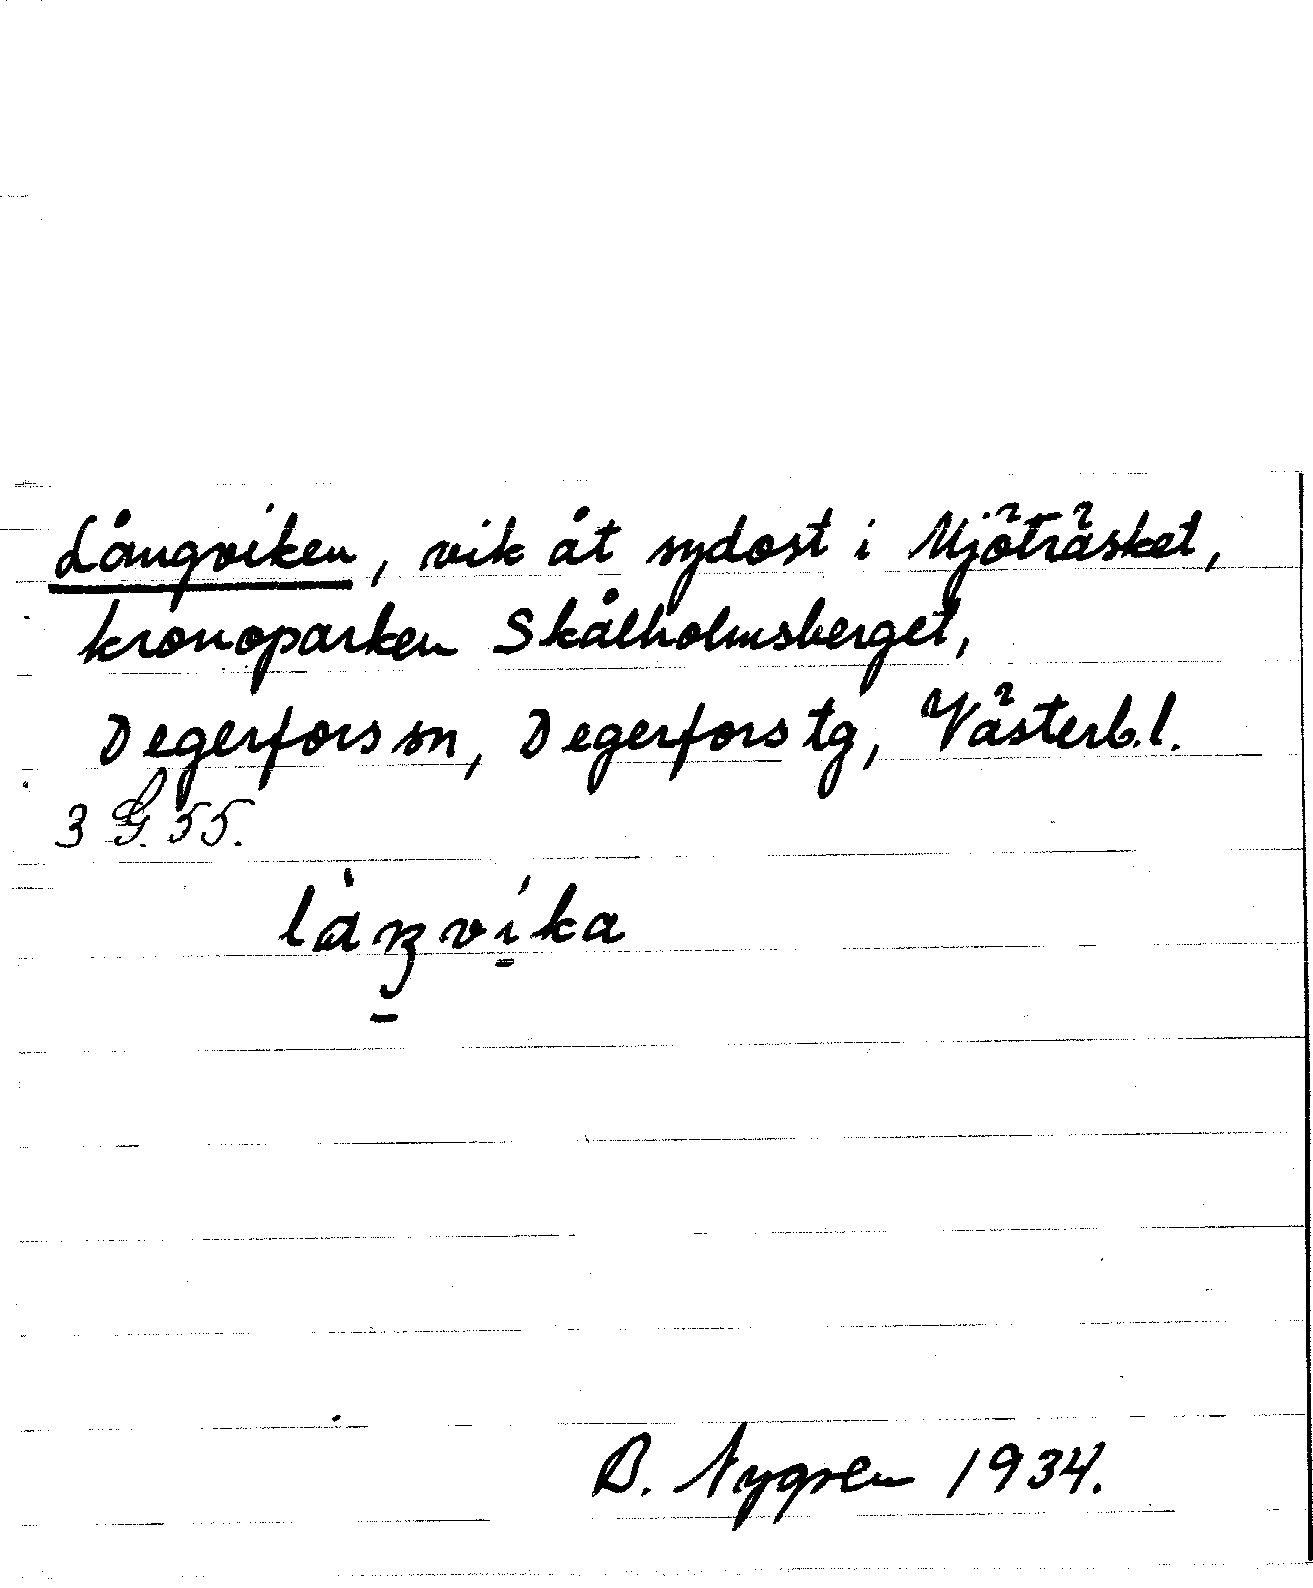 Långviken, vik åt sydost i Mjöträsket,
kronoparken Skålholmsberget,
Degerfors sn, Degerfors tg, Västerb.l.
3 G. 55.
làŋvíka
B. Nygren 1934.